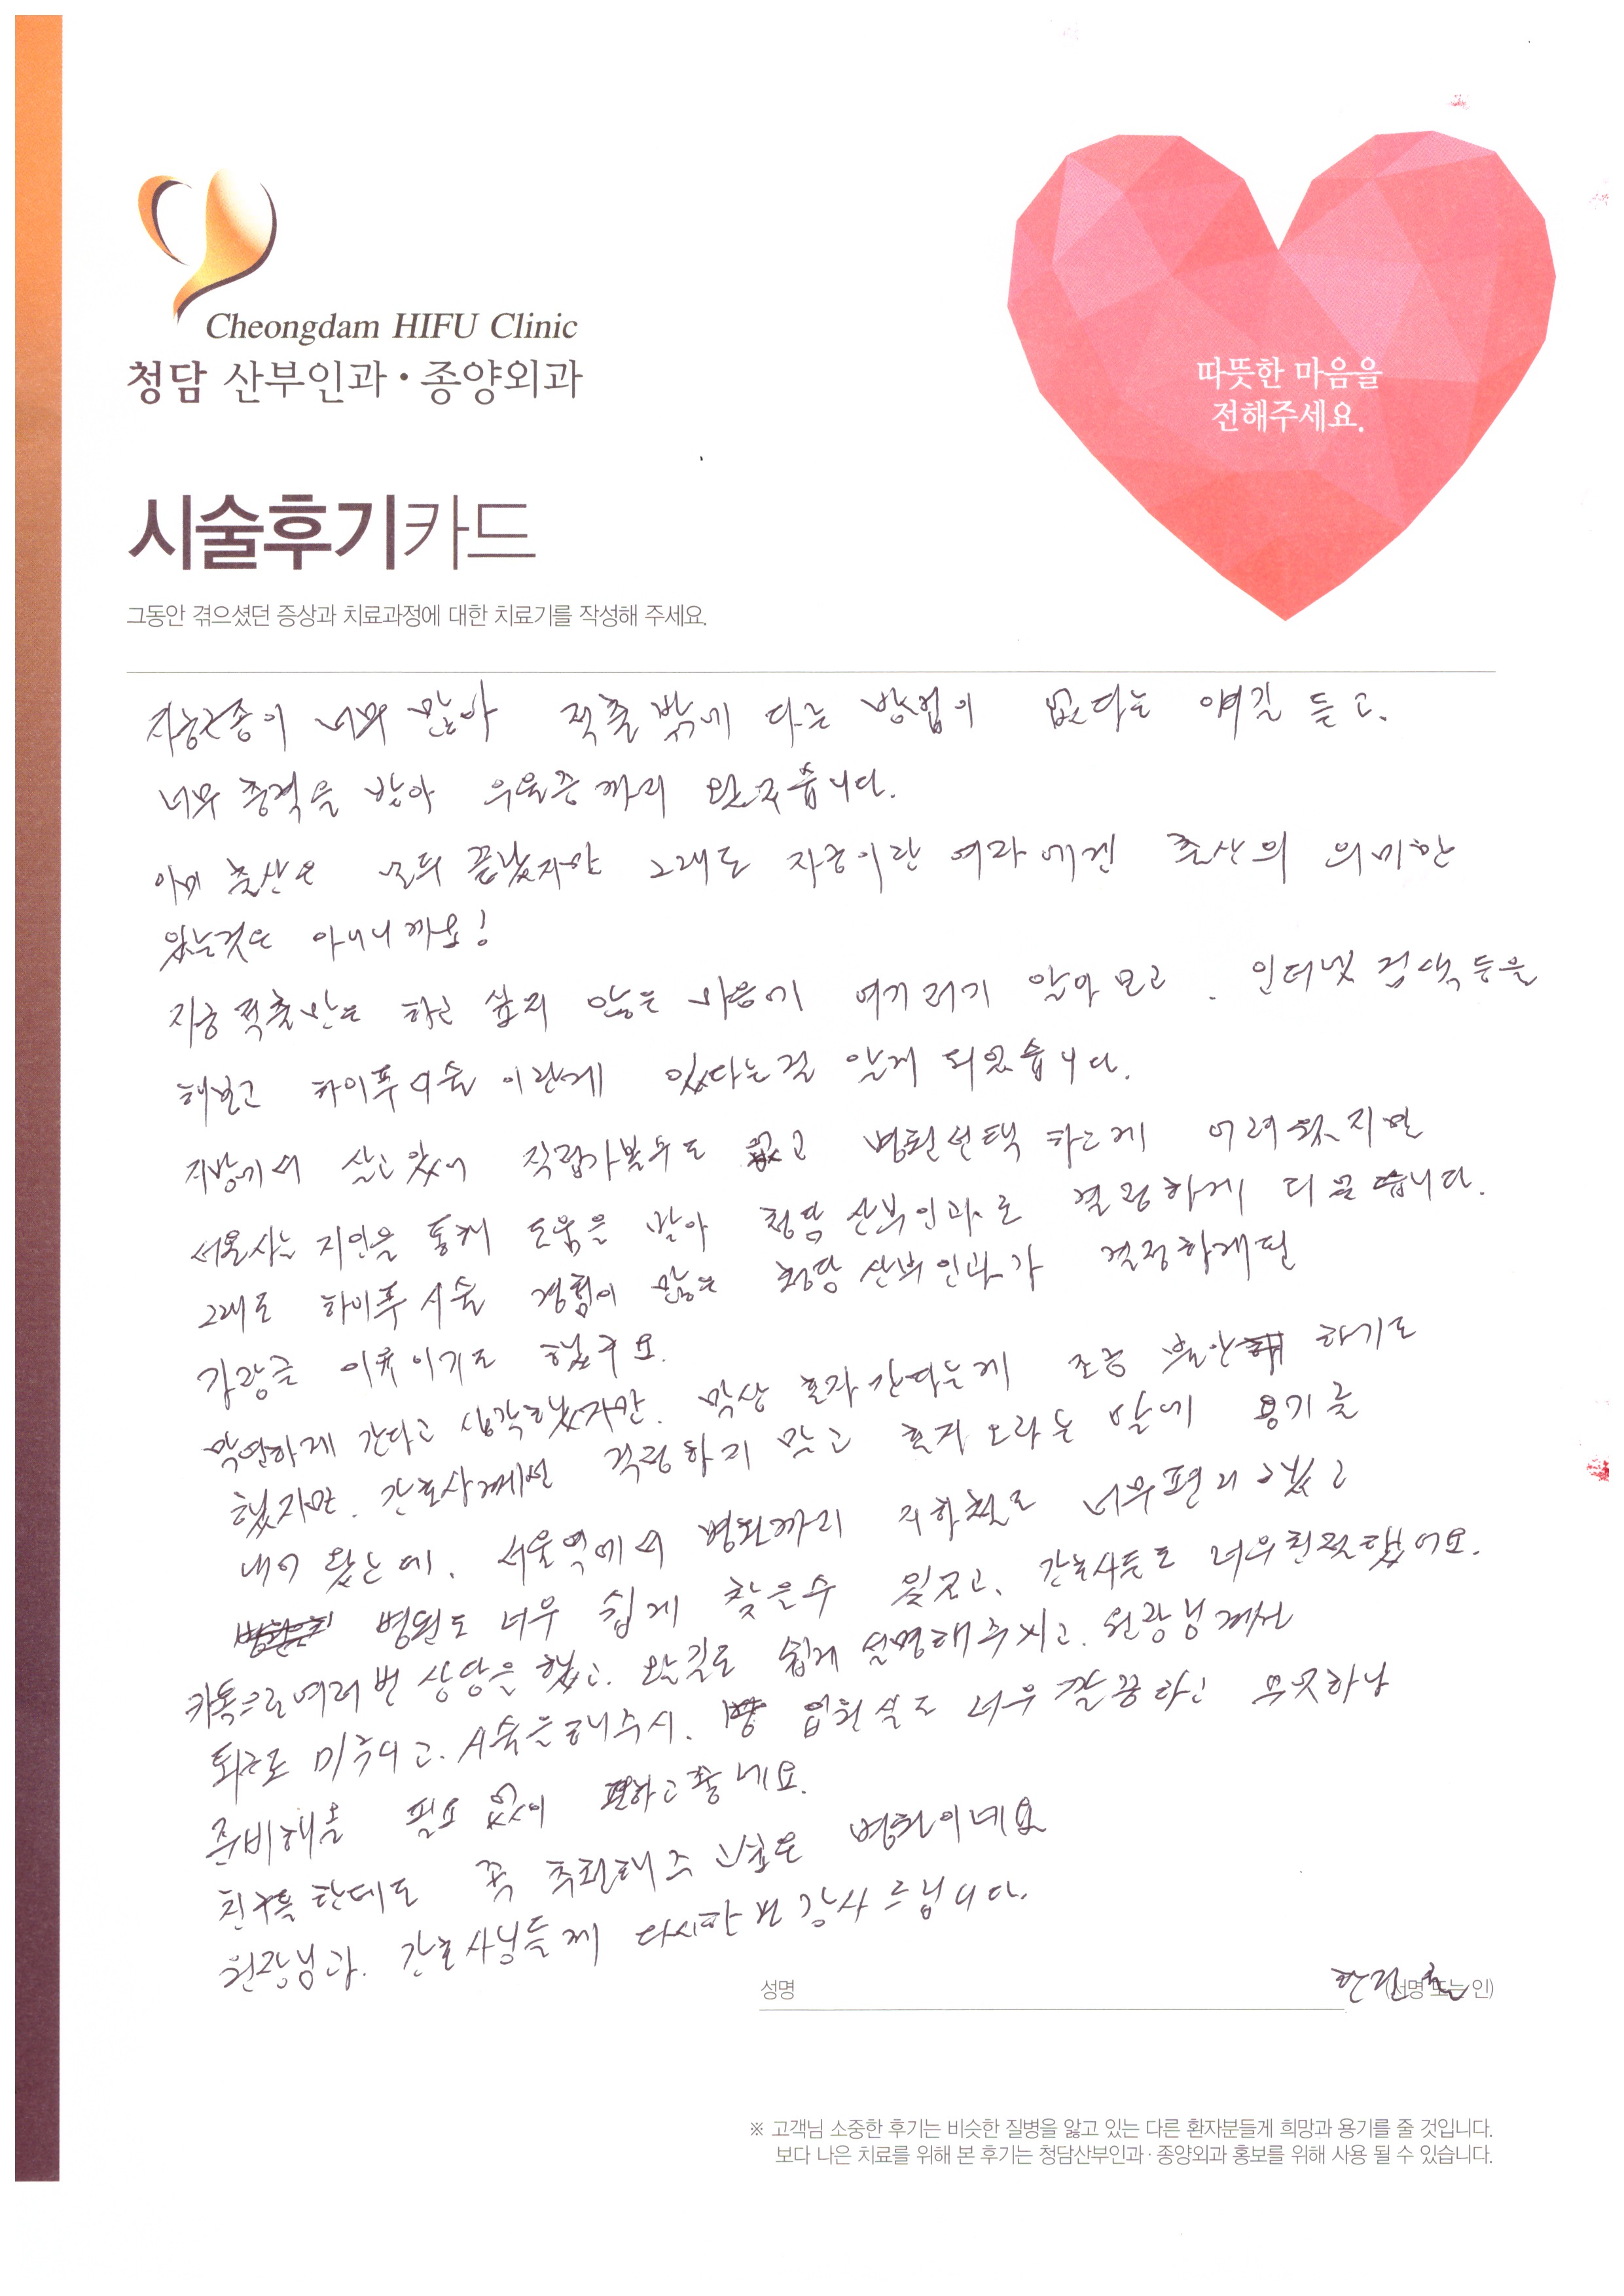 Cheongdam HIFU Clinic
청담 산부인과·종양외과
따뜻한 마음을
전해주세요.
시술후기카드
그동안 겪으셨던 증상과 치료과정에 대한 치료기를 작성해 주세요.
자궁근종이 너무 많아 적출밖에 다른 방법이 없다는 얘길 듣고.
너무 충격을 받아 우울증까지 왔었습니다.
이미 출산은 모두 끝났지만 그래도 자궁이란 여자에겐 출산의 의미만
있는것은 아니니까요!
자궁적출만은 하고 싶지 않은 마음에 여기저기 알아보고. 인터넷 검색등을
해보고 하이푸시술이란게 있다는걸 알게 되었습니다.
지방에서 살고있어 직접가볼수도 없고 병원선택 하는게 어려웠지만
서울사는 지인을 통해 도움을 받아 청담산부인과로 결정하게 되었습니다.
그래도 하이푸시술 경험이 많은 청담산부인과가 결정하게된
가장큰 이유이기도 했구요.
막연하게 간다고 생각했지만. 막상 혼자간다는게 조금 불안 하기도
했지만. 간호사께서 걱정하지 말고 혼자오라는 말에 용기를
내어 왔는데. 서울역에서 병원까지 지하철로 너무편리했고
병원도 너무 쉽게 찾을수 있었고. 간호사들도 너무친절했어요.
카톡으로여러번 상담을 했고. 오는길도 쉽게 설명해주시고. 원장님께선
퇴근도 미루시고. 시술을해주시. 입원실도 너무깔끔하고 무엇하나
준비해올 필요 없이 편하고좋네요.
친구들한테도 꼭 추천해주고싶은 병원이네요
원장님과. 간호사님들께 다시한번감사드립니다.
성명 (서명 또는 인)
※ 고객님 소중한 후기는 비슷한 질병을 앓고 있는 다른 환자분들께 희망과 용기를 줄 것입니다.
보다 나은 치료를 위해 본 후기는 청담산부인과·종양외과 홍보를 위해 사용 될 수 있습니다.